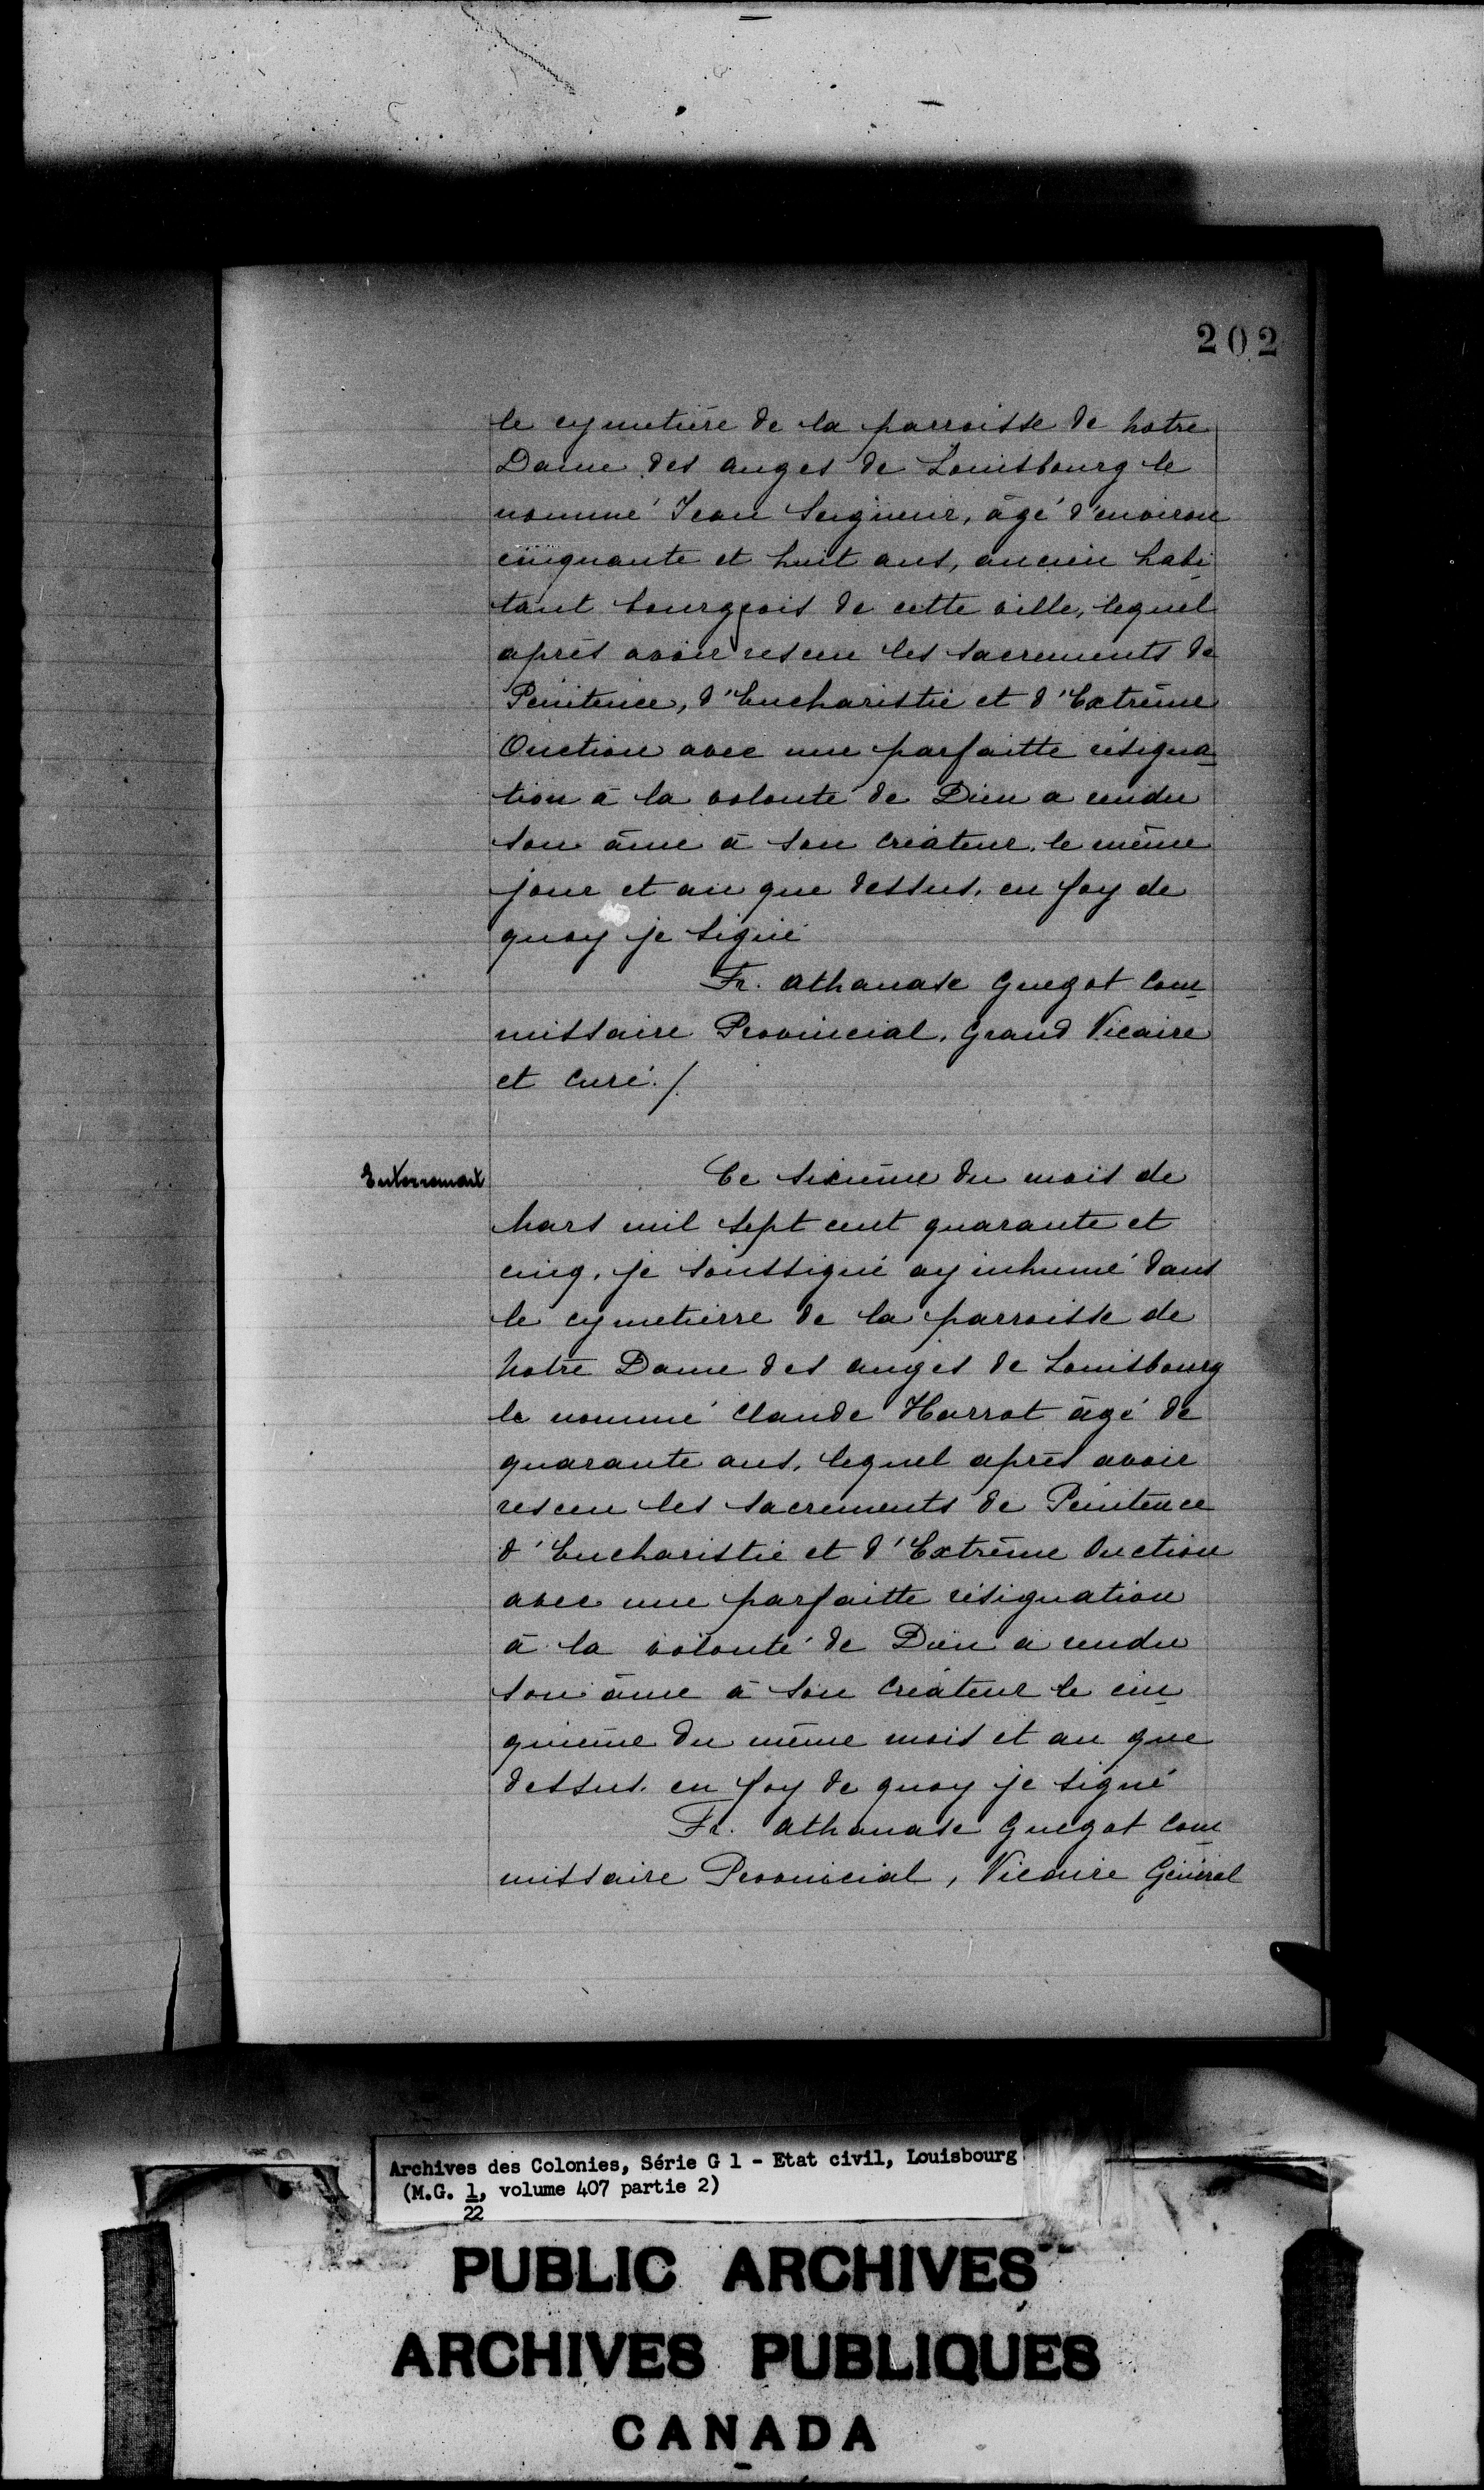 202
le cymetière de la parroisse de notre
Dame des anges de Louisbourg le
nommé Jean Seigneur, âgé d'environ
cinquante et huit ans, ancien habi-
tant bourgeois de cette ville, lequel
après avoir resceu les sacrements de
Penitence, d'Eucharistie et d'Extrême
Onction avec une parfaitte résigna-
tion à la volonté de Dieu a rendu
son âme à son créateur, le même
jour et an que dessus, en foy de
quoy je signé
Fr. athanase Guegot Com-
missaire Provincial, Grand Vicaire
et curé./.
Enterrement
Ce sixième du mois de
Mars mil sept cent quarante et
cinq, je soussigné ay inhumé dans
le cymetierre de la parroisse de
Notre Dame des anges de Louisbourg
le nommé Claude Harrot âgé de
quarante ans, lequel après avoir
resceu les sacrements de Penitence
d'Eucharistie et d'Extrême Onction
avec une parfaitte résignation
à la volonté de Dieu a rendu
son âme à son créateur le cin-
quième du même mois et an que
dessus, en foy de quoy je signé
Fr. Athanase Guegot Com-
missaire Provincial, Vicaire Général
Archives des Colonies, Série G 1 - Etat civil, Louisbourg
(M.G. 1, volume 407 partie 2)
22
PUBLIC ARCHIVES
ARCHIVES PUBLIQUES
CANADA